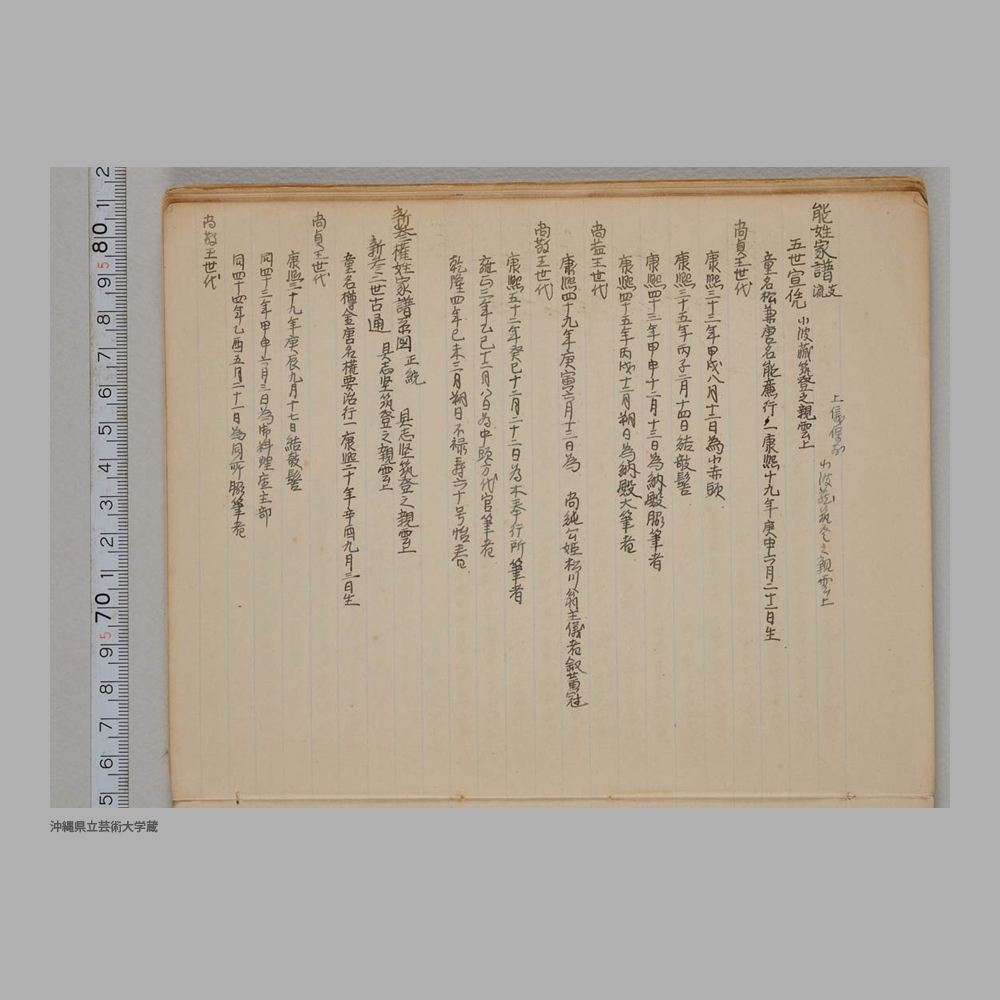 能姓家譜 支流
上儀保家 小波蔵筑登之親雲上
五世宣佐 小波蔵筑登之親雲上
童名松兼唐名能薦行一康熙十九年庚申六月二十二日生
尚貞王世代
康熙三十三年甲戌八月十二日為小赤頭
康熙三十五年丙子二月十四日結敬髻
康熙四十三年甲申十二月十三日為納殿脇筆者
康熙四十五年丙戌十二月朔日為納殿大筆者
尚益王世代
康熙四十九年庚寅六月十三日為 尚純公姫松川翁主儀者叙黄冠
尚敬王世代
康熙五十二年癸巳十二月二十二日為木奉行所筆者
雍正三年乙巳十二月八日為中頭方代官筆者
乾隆四年己未三月朔日不禄寿六十号怡春
新参權姓家譜系図 正統 具志堅筑登之親雲上
新参二世古通 具志堅筑登之親雲上
童名樽金唐名權要治行一康熙二十年辛酉九月三日生
尚貞王世代
康熙三十九年庚辰九月十七日結敬髻
同四十三年甲申六月三日為御料理座主部
同四十四年乙酉五月二十一日為同所脇筆者
尚敬王世代
2
80 1
9 5
8
7
6
5
4
3
2
70 1
9 5
8
7
6
5
沖縄県立芸術大学蔵